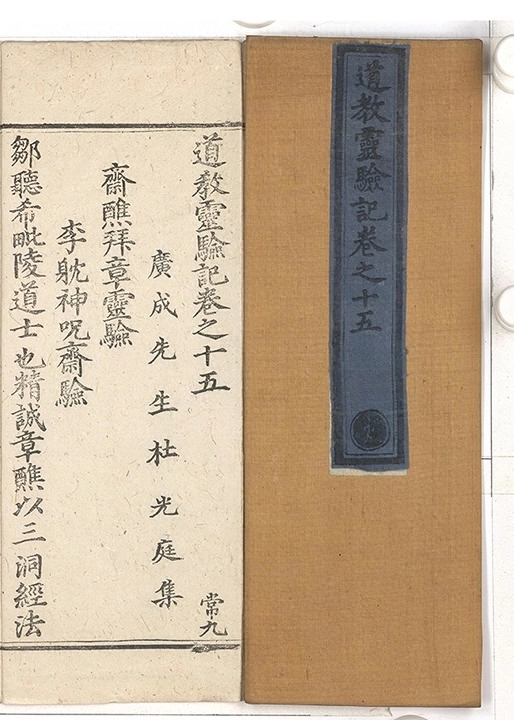 道教靈驗記卷之十五
道教靈驗記卷之十五 常九
廣成先生杜光庭集
齋醮拜章靈驗
李躭神呪齋驗
鄒聽希毗陵道士也精誠章醮以三洞經法